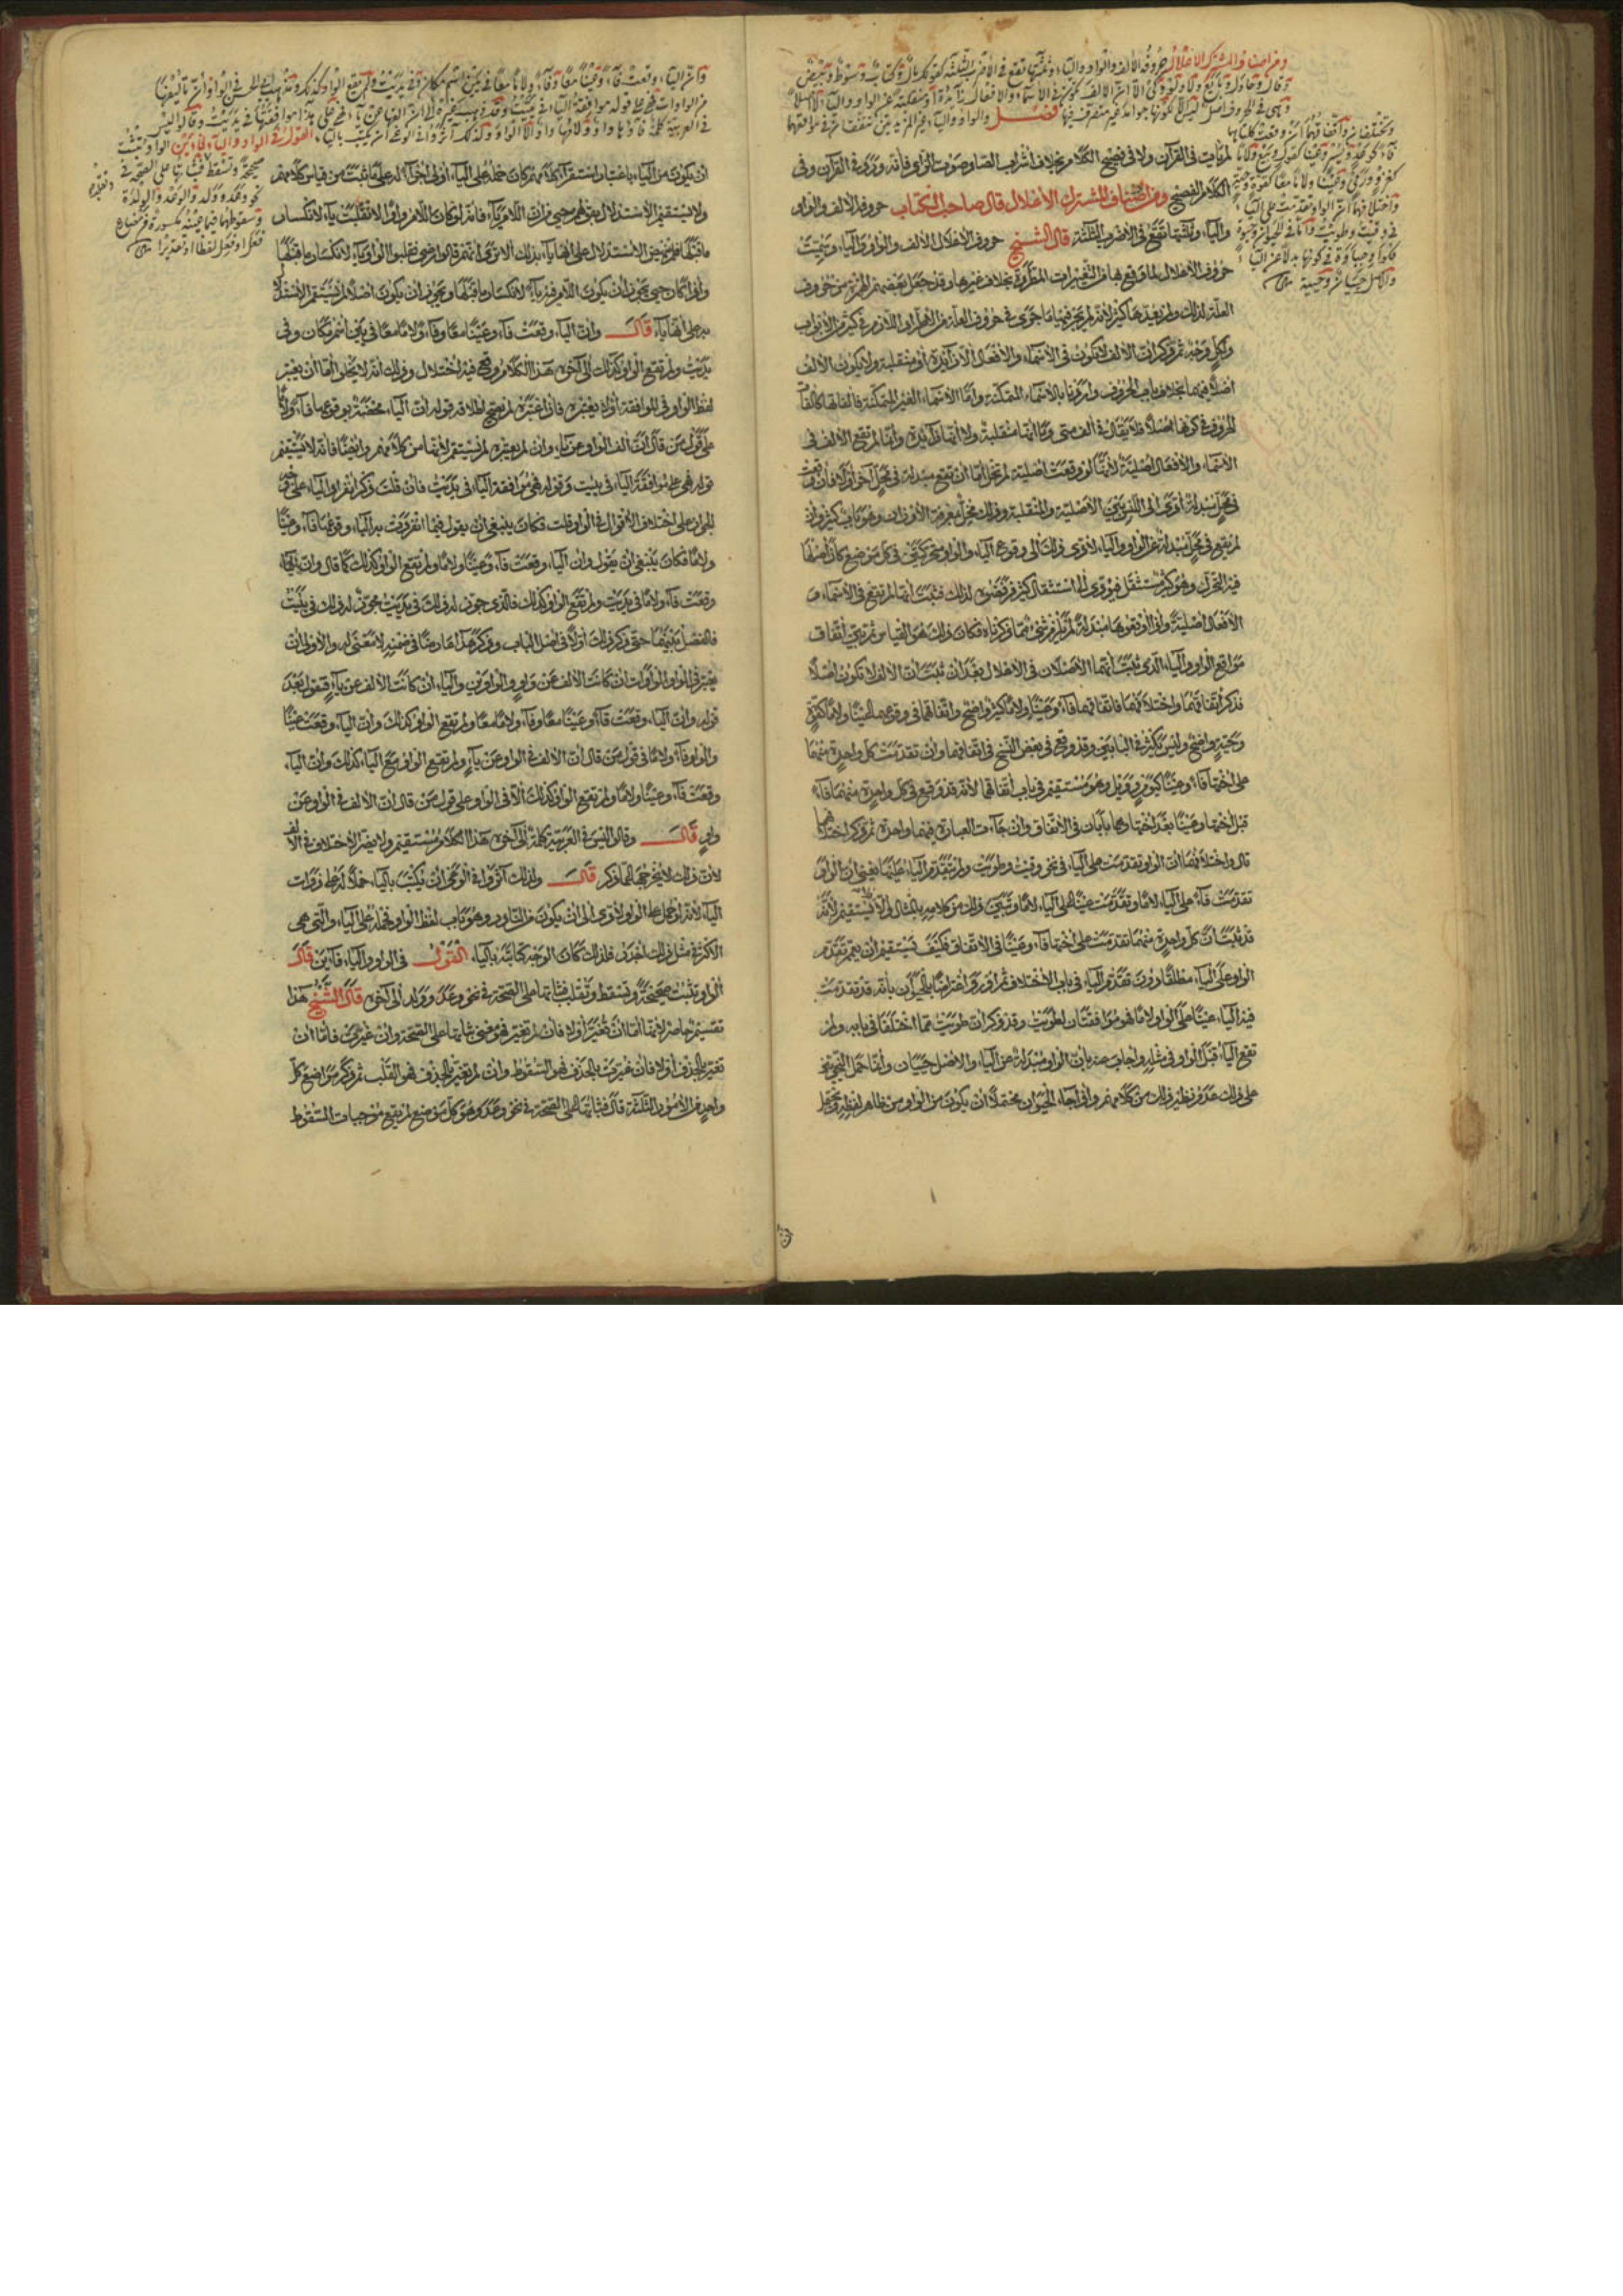 ومن اصناف المشترك الاعتلال حروفه الالف والواو والياء وثلثتها تقع في الاضرب الثلثة كقولك مال وكتاب وسوط وبيض
وقال وحاول وبايع ولا ولو وكي الا ان الالف تكون في الاسماء والافعال زائدة او منقلبة عن الواو والياء لا اصلا
وهي في الحروف اصل ليس الا لكونها جوامد غير متصرف فيها فصل والواو والياء غير المزيدتين تتفقان في مواقعهما
وتختلفان فاتفاقهما ان وقعت كلتاهما
فاء كوعد ويسر وعينا كقول وبيع ولاما
كغزو ورمي وعينا ولاما معا كقوة وحية
واختلافهما ان الواو تقدمت على الياء
في وقيت وطويت واما في الحيوان وحيوة
فكواو جباوة في كونها بدلا عن الياء
والاصل حييان وحيية
لم يأت في القرآن ولا في فصيح الكلام بخلاف اشراب الصاد صوت الزاي فانه ورد في القرآن وفي
الكلام الفصيح ومن اصناف المشترك الاعتلال قال صاحب الكتاب حروفه الالف والواو
والياء وثلثتها تقع في الاضرب الثلثة قال الشيخ حروف الاعتلال الالف والواو والياء وسميت
حروف الاعتلال لما وقع بها من التغييرات المطردة بخلاف غيرها وقد جعل بعضهم الهمزة من حروف
العلة لذلك ولم يعدها كثير لانه لم يجر فيها ما جرى في حروف العلة من الاعلال اللازم في كثير من الابواب
ولكل وجه ثم ذكر ان الالف لا تكون في الاسماء والافعال الا زائدة او منقلبة ولا يكون الالف
اصلا فيهما بخلاف باب الحروف واردنا بالاسماء المتمكنة واما الاسماء الغير المتمكنة فالفاتها كالفات
الحروف في كونها اصلا فلا يقال في الف متى وما انها منقلبة ولا انها زائدة وانما لم تقع الالف في
الاسماء والافعال اصلية لانها لو وقعت اصلية لم تخل اما ان تقع مبدلة في محل آخر اولا فان وقعت
في محل مبدلة ادى الى اللبس بين الاصلية والمنقلبة وذلك مخل بمعرفة الاوزان وهو باب كثير وان
لم يقع في محل مبدلة عن الواو والياء لادى ذلك الى وقوع الياء والواو متحركتين في كل موضع كان اصلها
فيه التحرك وهو كثير مستثقل فيؤدي الى استثقال كثير فرفضوه لذلك فثبت انها لم تقع في الاسماء و
الافعال اصلية واذا وقعوها مبدلة لم يلزم شيء مما ذكرناه فكان ذلك هو القياس ثم بين اتفاق
مواقع الواو والياء الذي ثبت انهما الاصلان في الاعلال بعد ان ثبت ان الالف لا تكون اصلا
فذكر اتفاقهما واختلافهما فاتفاقهما فاء وعينا ولاما كثير واضح واتفاقهما في وقوعهما عينا ولاما كقوة
وحية واضح وليس بكثير في البابين وقد وقع في بعض النسخ في اتفاقهما وان تقدمت كل واحدة منهما
على اختها فاء وعينا كيوم وويل وهو مستقيم في باب اتفاقهما لانه قد وقع في كل واحدة منهما فاء
قبل اختها وعينا بعد اختها وهما بابان في الاتفاق وان جاءت العبارة فيهما واحدة ثم ذكر اختلافهما
قال واختلافهما ان الواو تقدمت على الياء في نحو وقيت وطويت ولم تتقدم الياء عليها يعني ان الواو
تقدمت فاء على الياء لاما وتقدمت عينا على الياء لاما وتبين ذلك من كلامه بالمثال والا لم يستقيم لانه
قد ثبت ان كل واحدة منهما تقدمت على اختها فاء وعينا في الاتفاق فكيف يستقيم ان يعمم تقدم
الواو على الياء مطلقا دون تقدم الياء في باب الاختلاف ثم اورد اعتراضا بالحيوان بانه قد تقدمت
فيه الياء عينا على الواو لاما فهو موافقتان لطويت وقد ذكر ان طويت مما اختلفا في بابه ولم
تقع الياء قبل الواو في مثله واجاب عنه بان الواو مبدلة عن الياء والاصل حييان وانما حمل النحويين
على ذلك عدم نظير ذلك من كلامهم واذا جاء الحيوان محتملا ان يكون من الواو من ظاهر لفظه ويحتمل
وان الياء وقعت فاء وعينا معا وفاء ولاما معا في يين اسم مكان وفي يديت ولم تقع الواو كذلك ومذهب ابي الحسن في الواو ان تأليفها
من الواوات فهي على قوله موافقة الياء في يييت وقد ذهب غيره الى ان الفها عن ياء فهي على هذا موافقتها في يديت وقالوا ليس
في العربية كلمة فاؤها واو ولامها واو الا الواو ولذلك آثروا في الوغى ان يكتب بالياء القول في الواو والياء فاءين الواو تثبت
صحيحة وتسقط وتقلب فثباتها على الصحة في
نحو وعد وولد والوعد والولدة
وسقوطها فيما عينه مكسورة من مضارع
فعل او فعل لفظا او تقديرا
ان يكون من الياء باعتبار استقراء كلامهم كان حمله على الياء اولى اجراء له على ما ثبت من قياس كلامهم
ولا يستقيم الاستدلال بقولهم حيي فان اللام ياء فانه لو كان اللام واوا لانقلبت ياء لانكسار
ما قبلها فلم ينهض الاستدلال على انها ياء بذلك الا ترى انهم قالوا رضي فقلبوا الواو ياء لانكسار ما قبلها
واذا كان حيي يجوز ان يكون اللام فيه ياء لانكسار ما قبلها ويجوز ان يكون اصلا لم يستقم الاستدلال
به على انها ياء قال وان الياء وقعت فاء وعينا معا وفاء ولاما معا في يين اسم مكان وفي
يديت ولم تقع الواو كذلك الى آخره هذا الكلام وقع فيه اختلال وذلك انه لا يخلو اما ان يعتبر
لفظ الواو في الموافقة اولا يعتبره فان اعتبره لم يصح اطلاقه قوله ان الياء مختصة بوقوعها فاء ولاما
على قول من قال ان الف الواو عن ياء وان لم يعتبره لم يستقم لانها من كلامهم وايضا فانه لا يستقيم
قوله فهي على موافقة الياء في يييت وقوله فهي موافقة الياء في يديت فان قلت ذكر انفراد الياء على
الجواز على اختلاف الاقوال في الواو قلت فكان ينبغي ان يقول فيما انفردت به الياء وقوعها فاء وعينا
ولاما فكان ينبغي ان يقول وان الياء وقعت فاء وعينا ولاما ولم تقع الواو كذلك كما قال وان الياء
وقعت فاء ولاما في يديت ولم تقع الواو كذلك فالذي جوز له ذلك في يديت مجوز له ذلك في يييت
فالفصل بينهما حتى ذكر ذلك اولا في اصل الباب وذكر هذا عارضا في ضمنه لا معنى له والاولى ان
يعتبر في الواو الواوات ان كانت الالف عن واو والواوين والياء ان كانت الالف عن ياء فيقول بعد
قوله وان الياء وقعت فاء وعينا معا وفاء ولاما معا ولم تقع الواو كذلك وان الياء وقعت عينا
والواو فاء ولاما في قول من قال ان الالف في الواو عن ياء ولم تقع الواو مع الياء كذلك وان الياء
وقعت فاء وعينا ولاما ولم تقع الواو كذلك الا في الواو على قول من قال ان الالف في الواو عن
واو قال وقالوا ليس في العربية كلمة الى آخره هذا الكلام مستقيم ولا يضر الاختلاف في الالف
لان ذلك لا يخرجها عما ذكر قال ولذلك آثروا في الوغى ان يكتب بالياء حملا له على ذوات
الياء لانه لو حمل على الواو لادى الى ان يكون من النادر وهو باب لفظ الواو فحمله على الياء والتي هي
الاكثر في مثل ذلك اجدر فلذلك كان الوجه كتابته بالياء القول في الواو والياء فاءين قال
الواو تثبت صحيحة وتسقط وتقلب فثباتها على الصحة في نحو وعد وولد الى آخره قال الشيخ هذا
تقسيم حاصر لانها اما ان تغير اولا فان لم تغير فهو معنى ثباتها على الصحة وان غيرت فاما ان
تغير بالحذف اولا فان غيرت بالحذف فهو السقوط وان لم تغير بالحذف فهو القلب ثم ذكر مواضع كل
واحد من الامور الثلثة قال فثباتها على الصحة في نحو وعد وهو كل موضع لم يقع موجبات السقوط